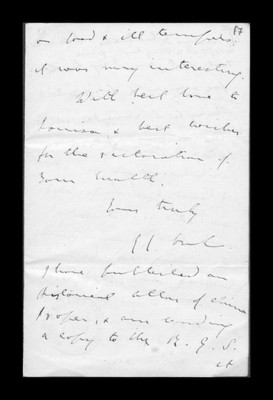 87
& ill tempered.
it was very interesting.
With best love to
Louisa & best wishes
for the restoration of
your health.
Yours truly
I have published an
Historical Atlas of China
Proper, & am sending
a copy to the R. G. S.